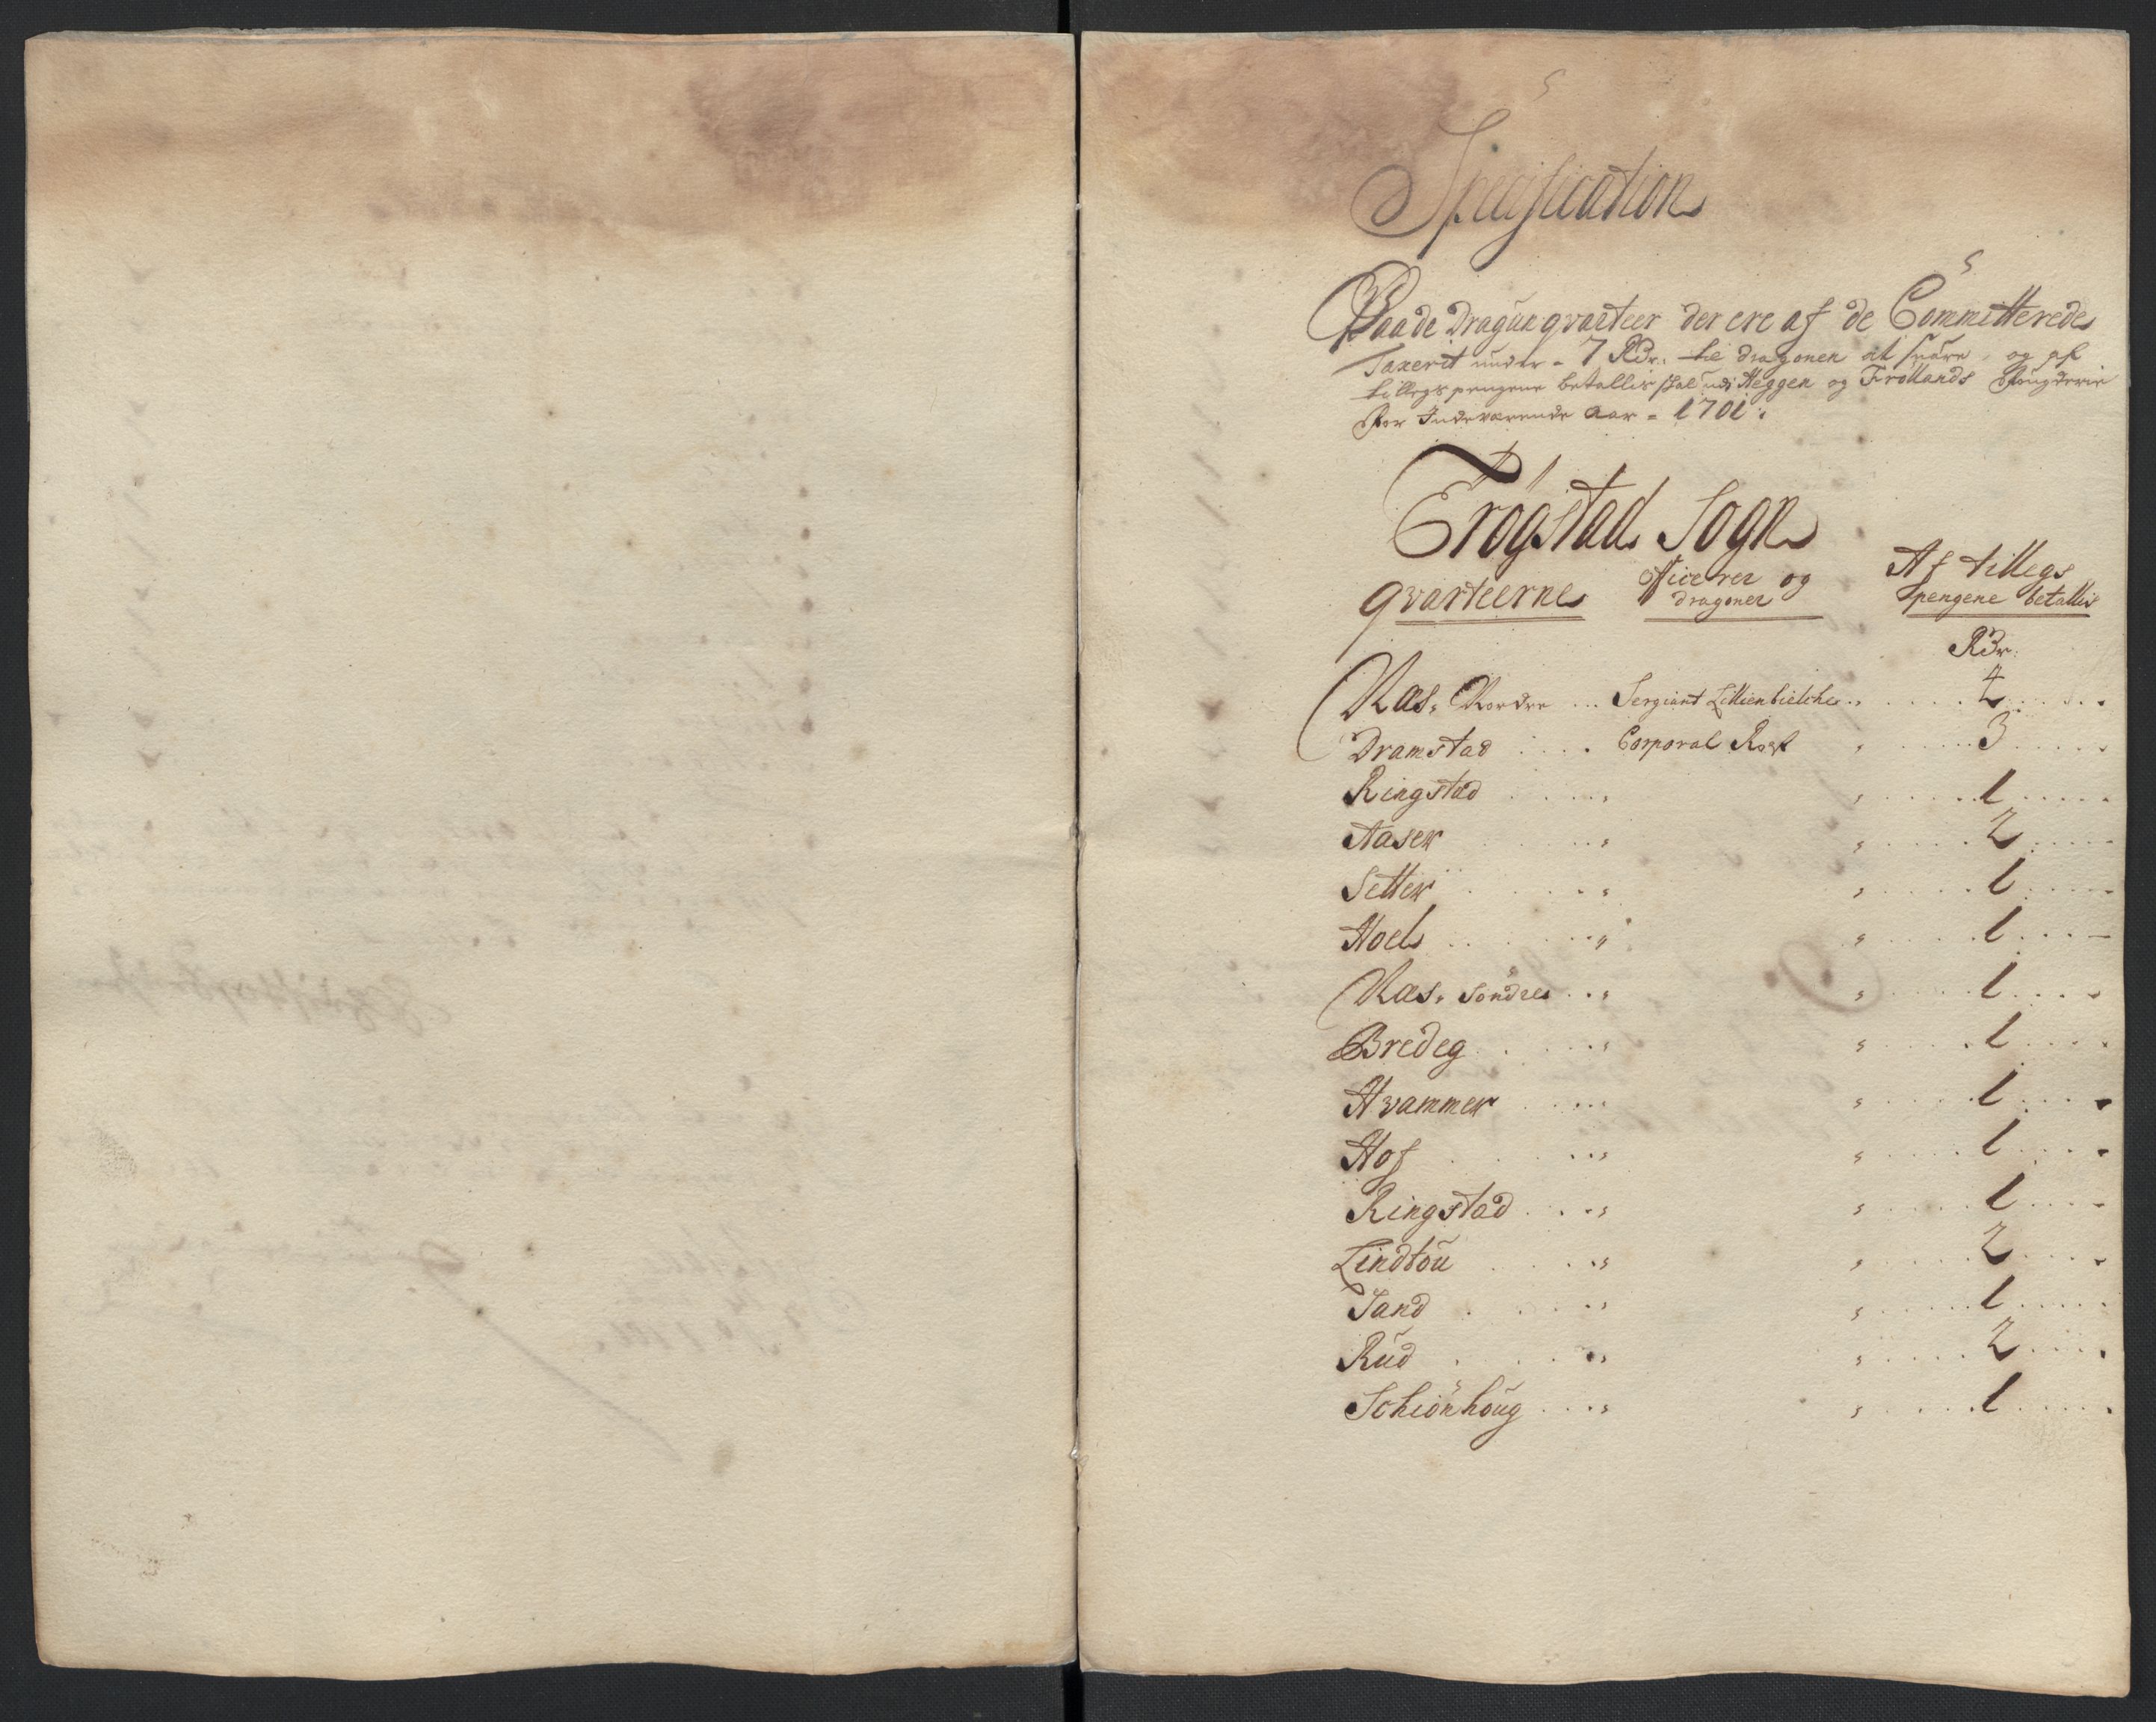 Specification
Paa de Dragun qvarteer der ere af de Committerede
Taxerit under - 7 Rdr. til dragonen at svare, og af
tillegs pengene betallis skal udi Heggen og Frøllands Fougderie
For Indeværende Aar - 1701.
Trøgstad Sogn
qvarteerne Officerer og dragoner Af tillegs pengene betallis
Rdr.
Næs, Nordre ... Sergiant Lillienbielche .. 4
Dramstad .... Corporal Rost 3
Ringstad .... 1
Aaser 2
Setter 1
Hoel 1
Næs, Søndre .. 1
Bredeg 1
Hvammer 1
Hof 1
Ringstad 1
Lindtou 2
Sand 1
Rud 2
Schiønhoug 1